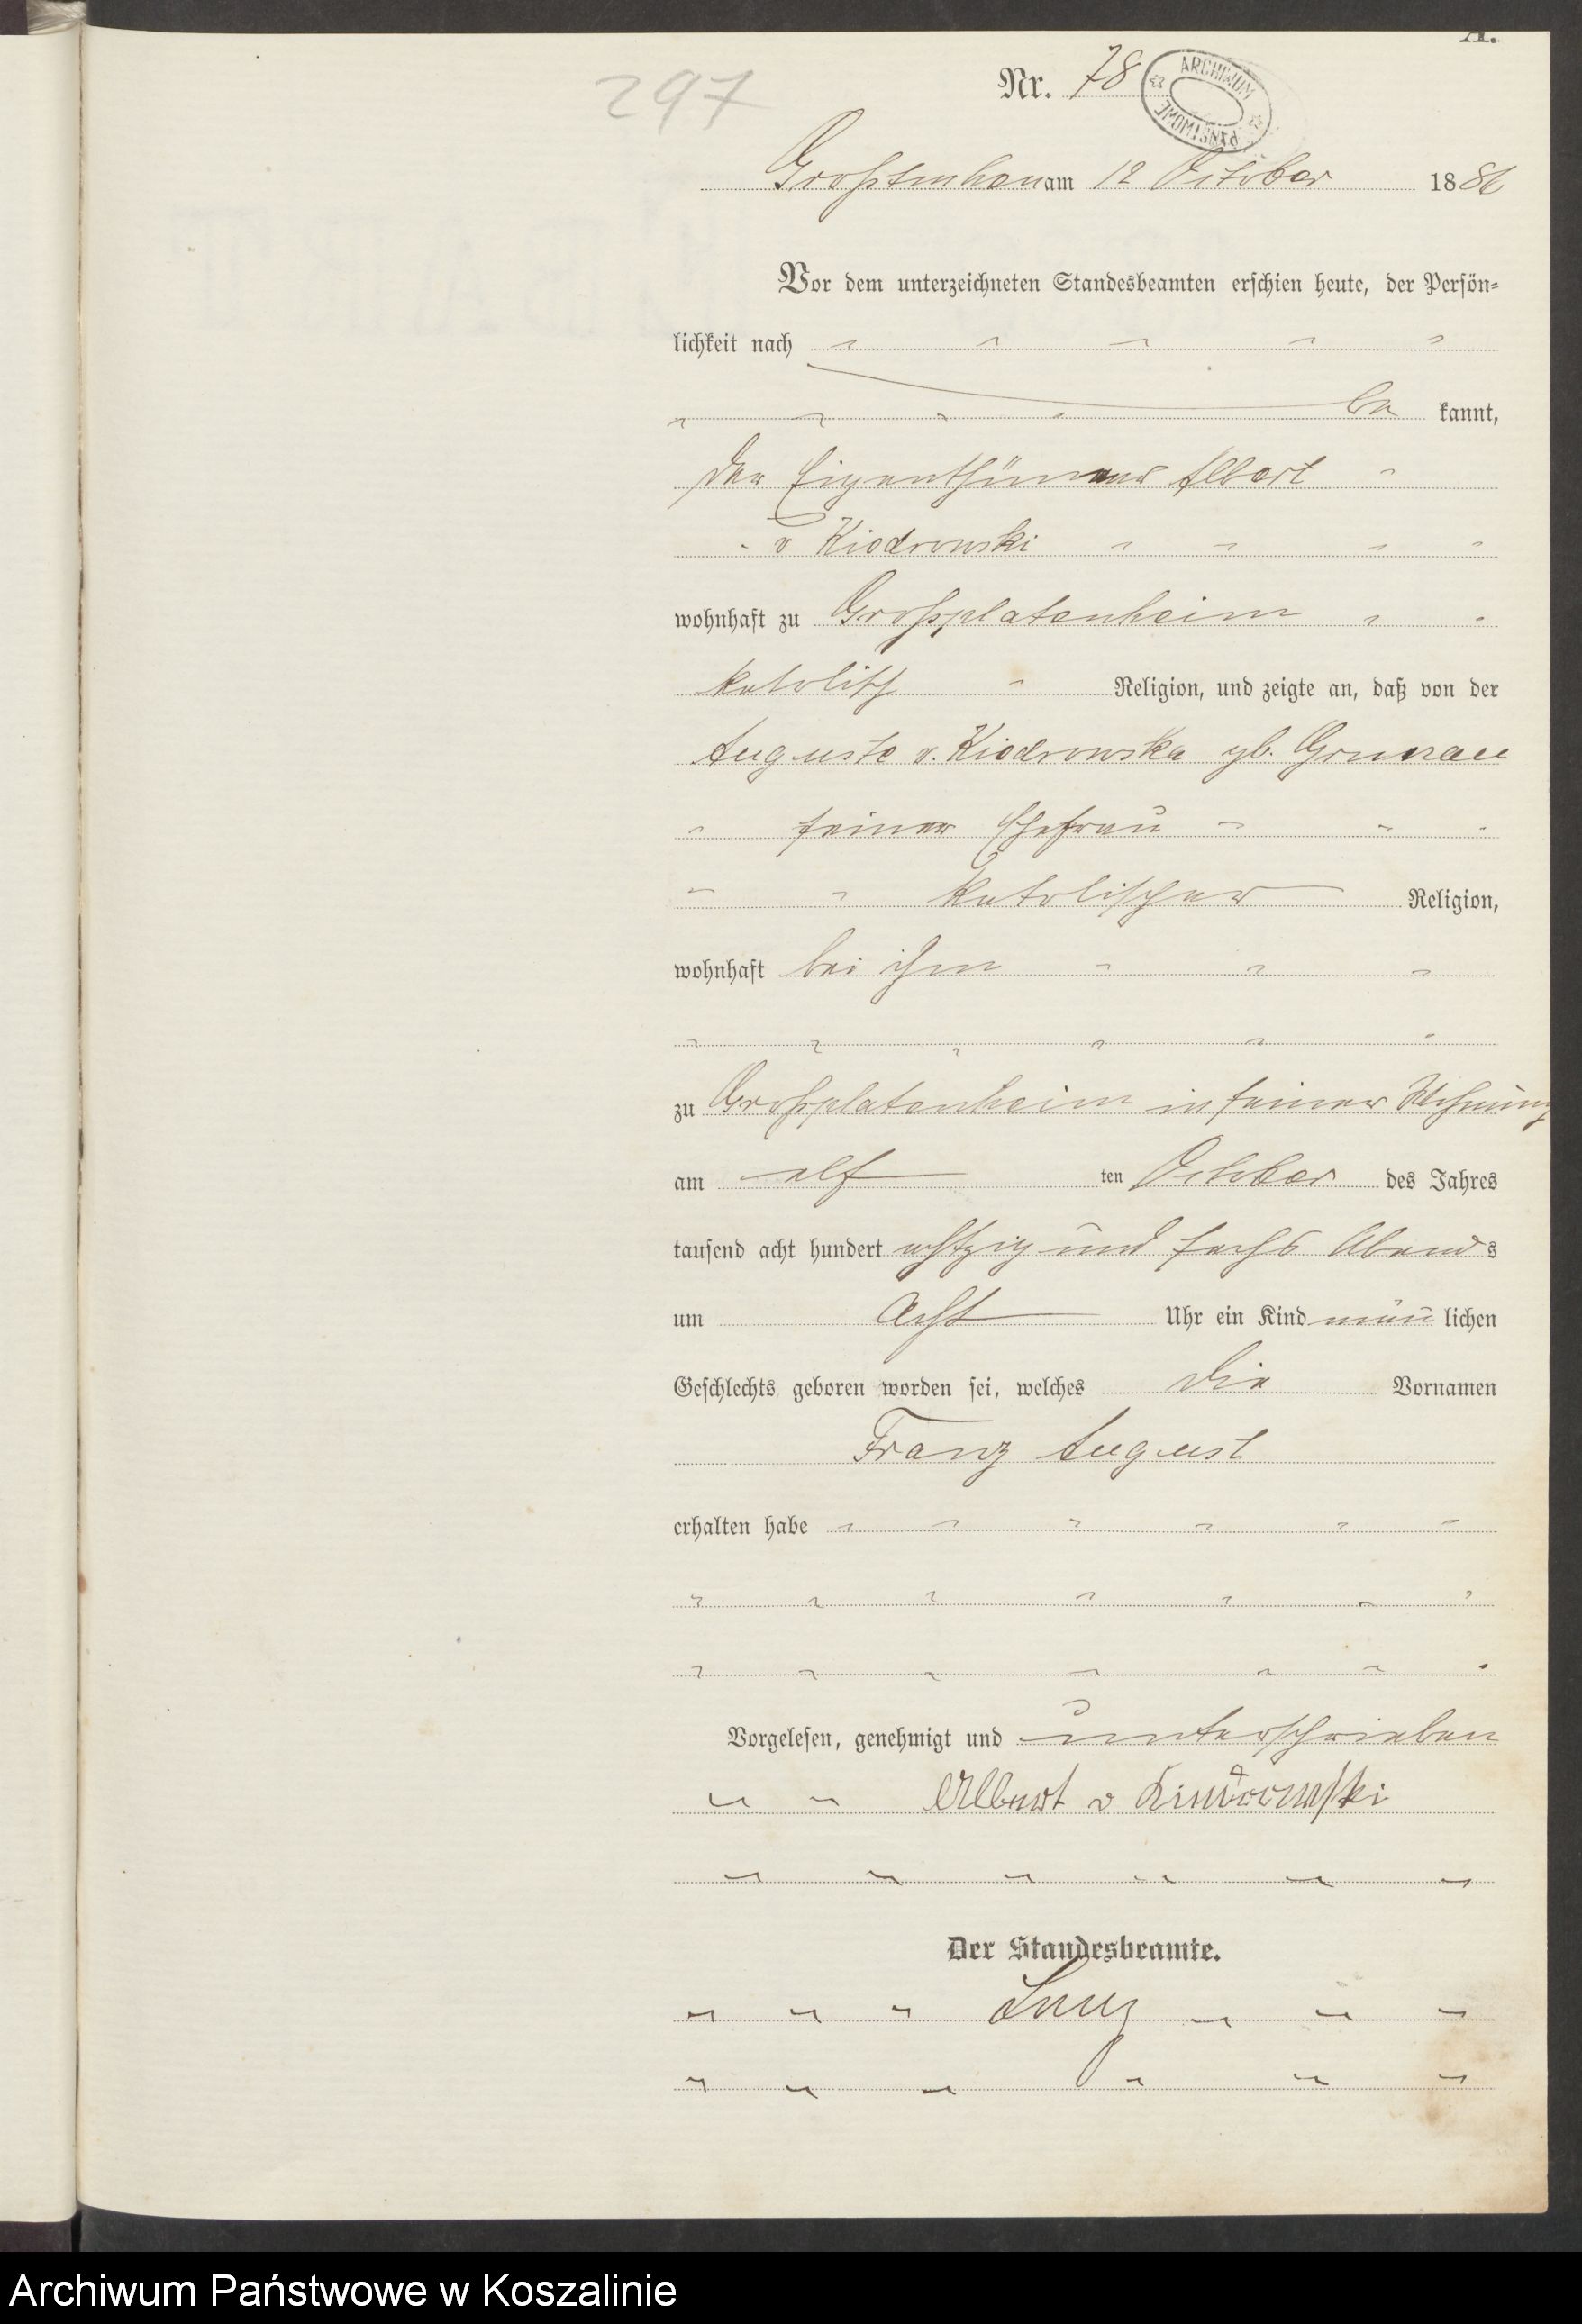 A.
297
Nr. 78
ARCHIWUM PAŃSTWOWE
Großtuchen am 12 October 1886
Vor dem unterzeichneten Standesbeamten erschien heute, der Persön-
lichkeit nach
be kannt,
der Eigenthümer Albert
v Kiedrowski
wohnhaft zu Großplatenheim
katolisch Religion, und zeigte an, daß von der
Auguste v. Kiedrowska gb. Grunau
seiner Ehefrau
katolischer Religion,
wohnhaft bei ihm
zu Großplatenheim in seiner Wohnung
am elf ten October des Jahres
tausend acht hundert achtzig und sechs Abends
um Acht Uhr ein Kind män lichen
Geschlechts geboren worden sei, welches die Vornamen
Franz August
erhalten habe
Vorgelesen, genehmigt und unterschrieben
Albert v Kiedrowski
Der Standesbeamte.
Archiwum Państwowe w Koszalinie